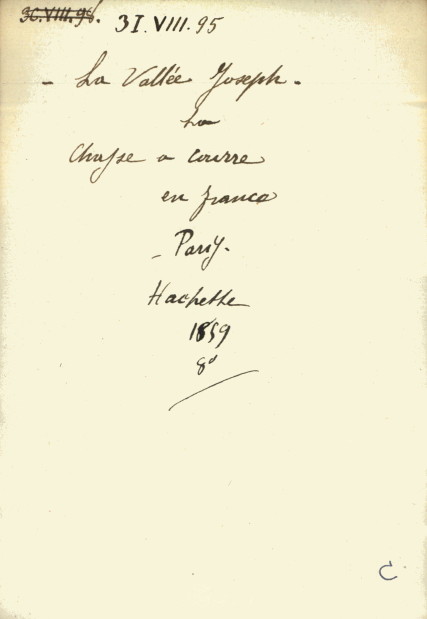 31.VIII.95
- La Vallée Joseph -
La
Chasse a courre
en france
- Paris -
Hachette
1859
8°
C